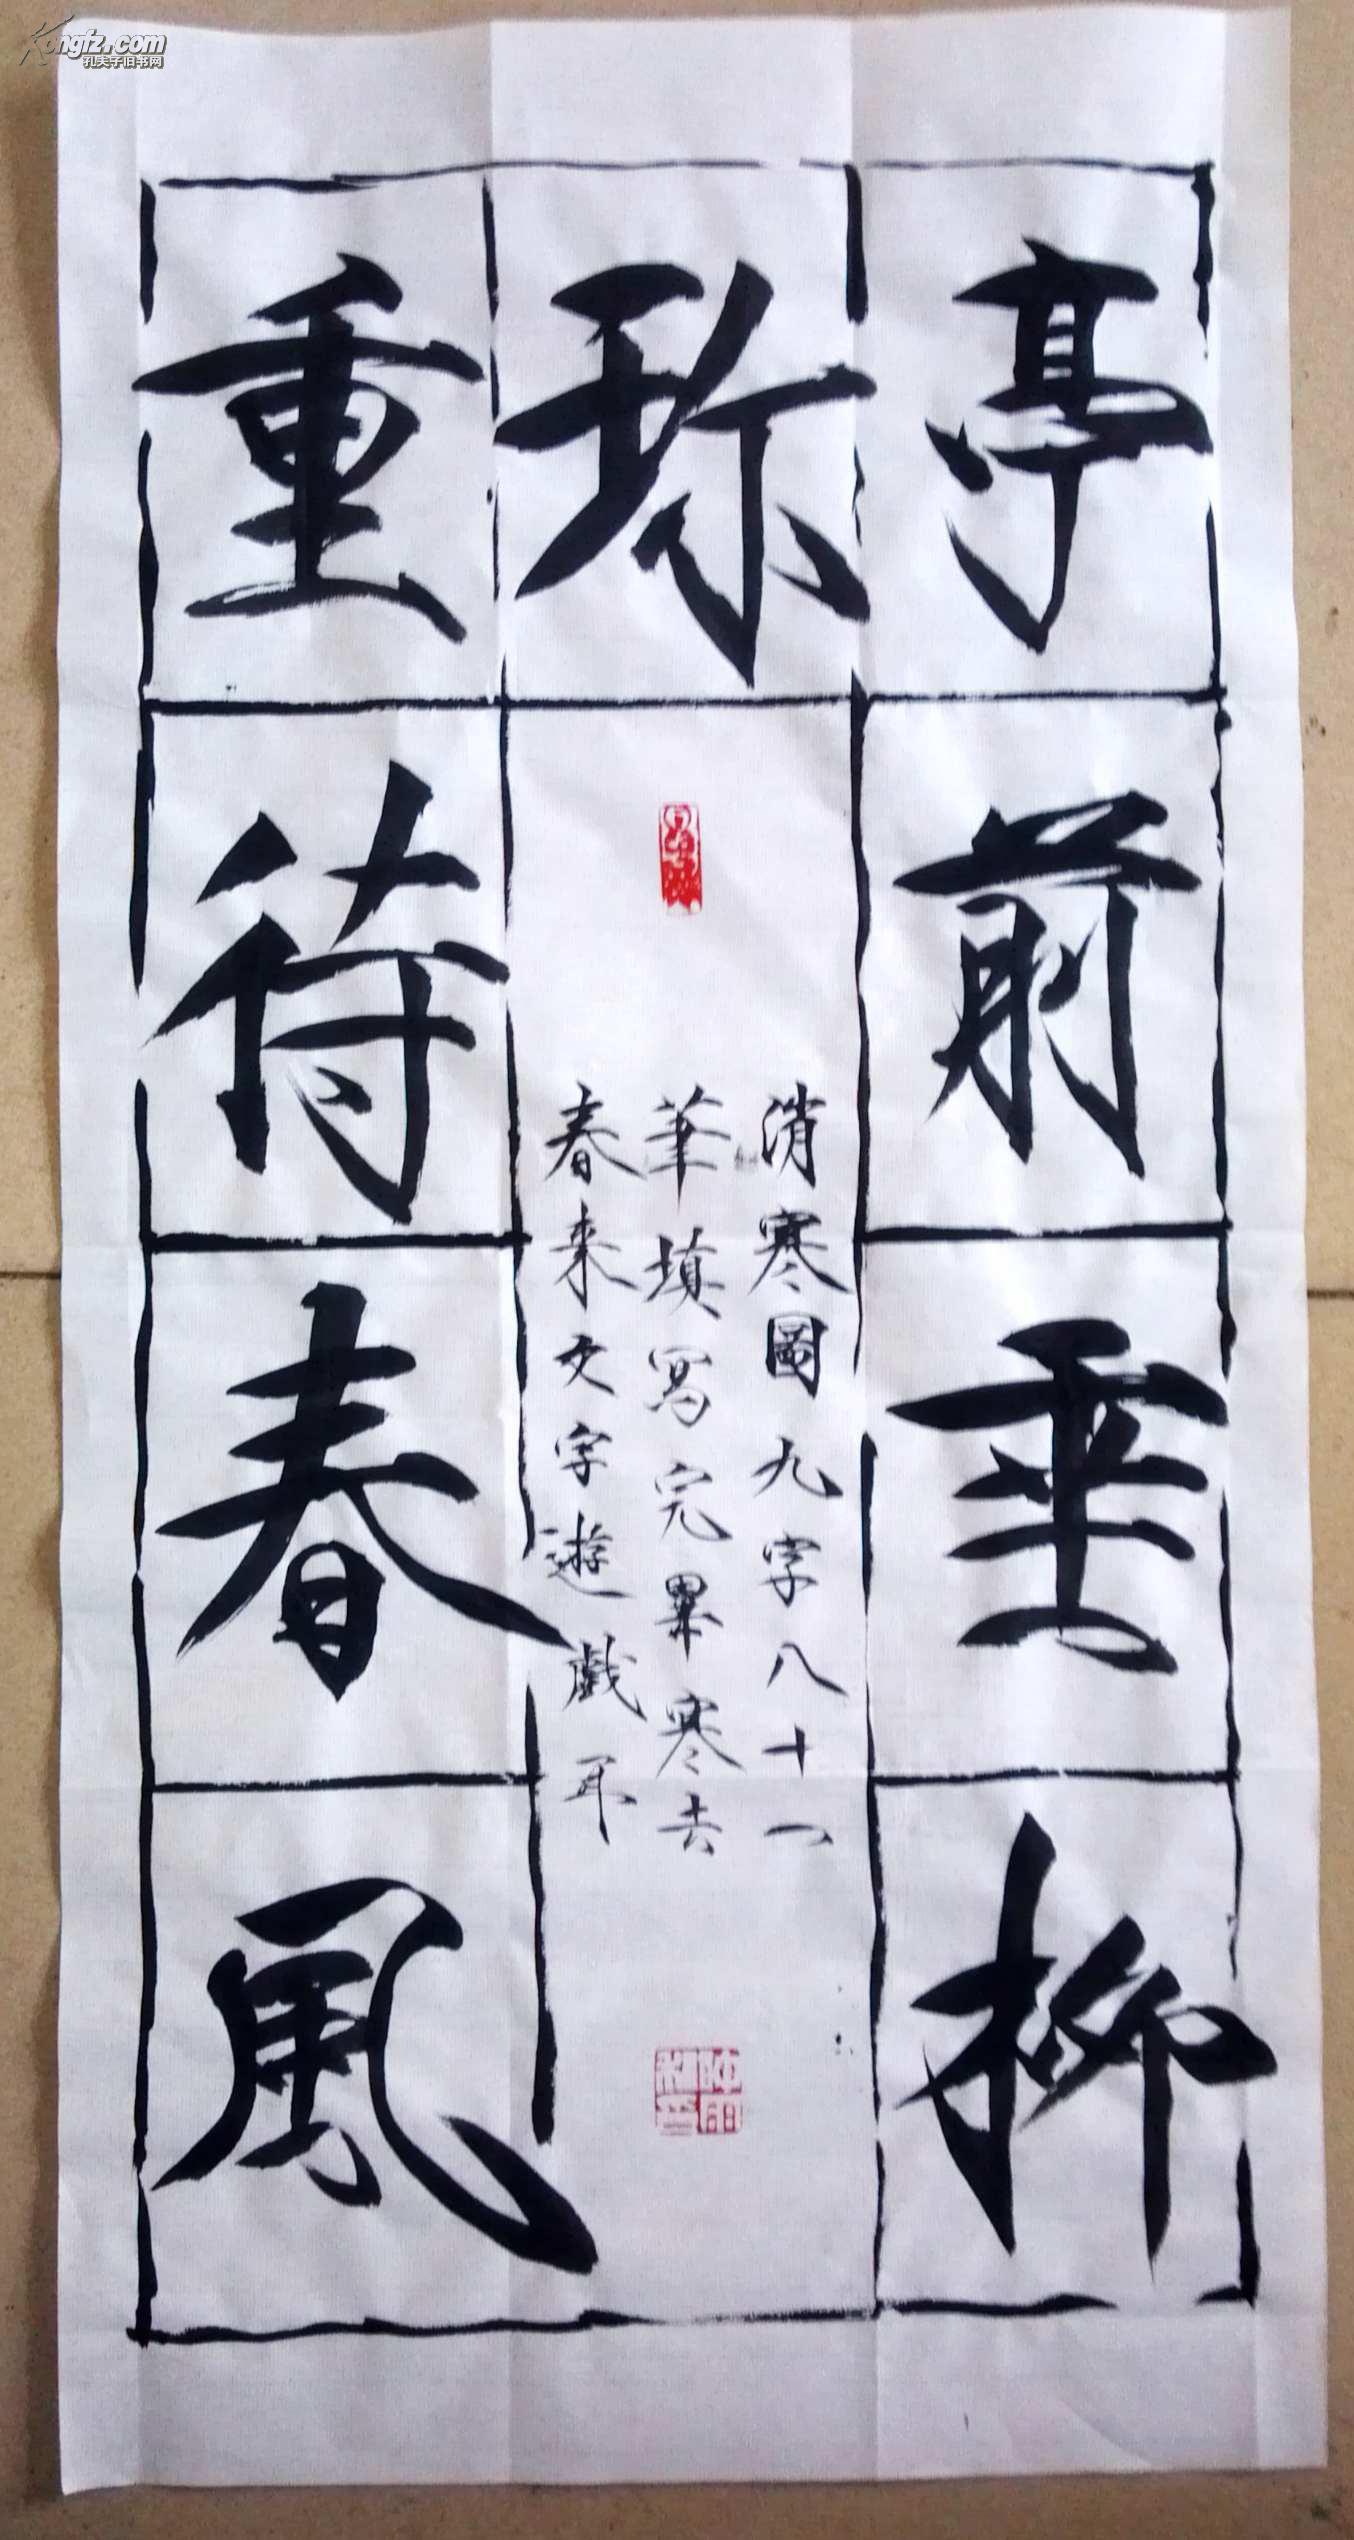 Kongfz.com
孔夫子旧书网
亭前垂柳
珎
重待春風
消寒圖九字八十一
筆填寫完畢寒去
春来文字遊戲耳